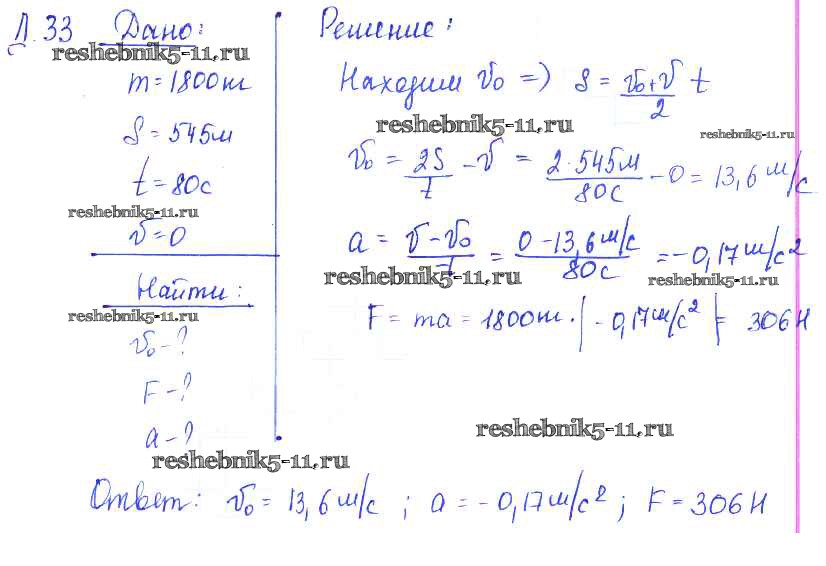 Д.33 Дано:
reshebnik5-11.ru
m = 1800т
S = 545м
t = 80с
reshebnik5-11.ru
v = 0
Найти:
reshebnik5-11.ru
v₀ - ?
F - ?
a - ?
reshebnik5-11.ru
Решение:
Находим v₀ => S = (v₀+v)/2 t
reshebnik5-11.ru
reshebnik5-11.ru
v₀ = 2S/t - v = 2·545м/80с - 0 = 13,6 м/с
a = (v - v₀)/t = (0 - 13,6 м/с)/80с = -0,17 м/с²
reshebnik5-11.ru
reshebnik5-11.ru
F = ma = 1800т · |-0,17 м/с²| = 306 Н
reshebnik5-11.ru
Ответ: v₀ = 13,6 м/с ; a = -0,17 м/с² ; F = 306 Н